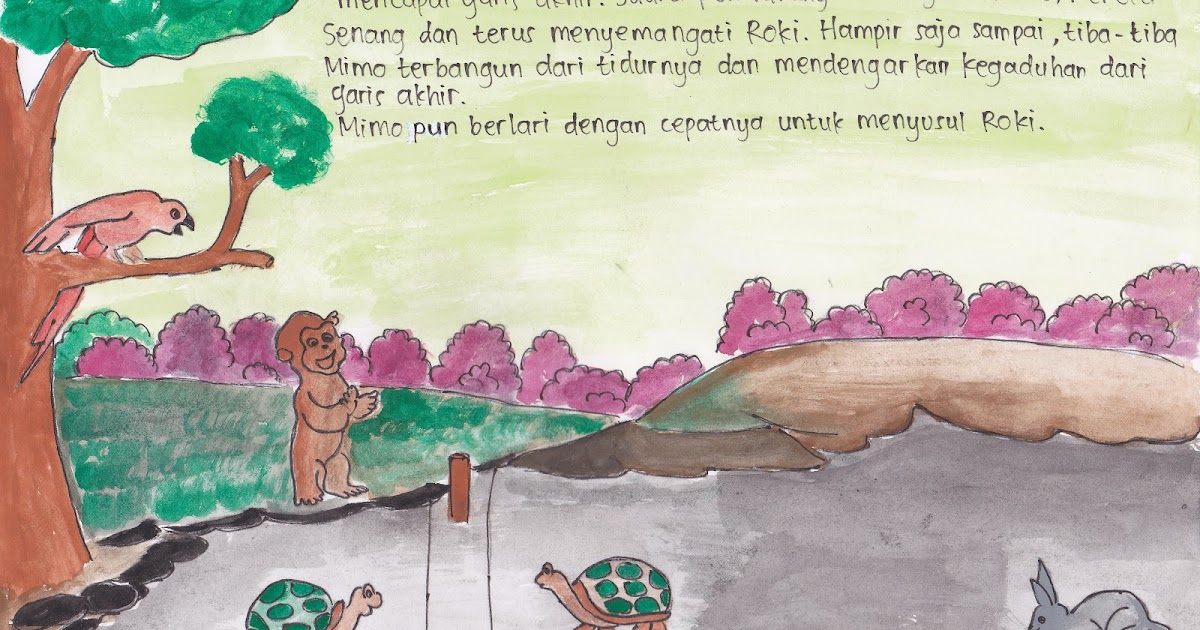 mencapai garis akhir.
Senang dan terus menyemangati Roki. Hampir saja sampai, tiba-tiba
Mimo terbangun dari tidurnya dan mendengarkan kegaduhan dari
garis akhir.
Mimo pun berlari dengan cepatnya untuk menyusul Roki.